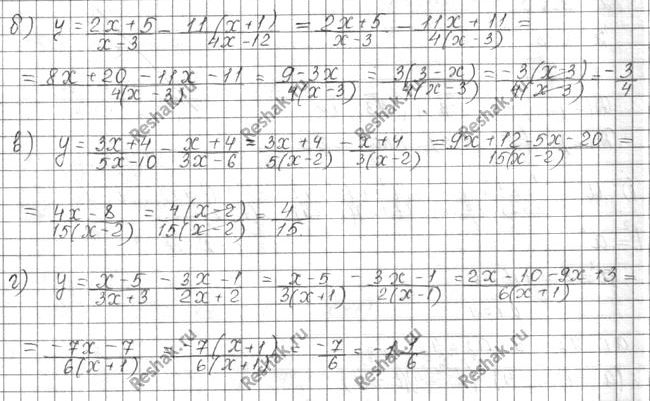 б) y = (2x+5)/(x-3) - 11(x+1)/(4x-12) = (2x+5)/(x-3) - (11x+11)/(4(x-3)) =
= (8x+20-11x-11)/(4(x-3)) = (9-3x)/(4(x-3)) = 3(3-x)/(4(x-3)) = -3(x-3)/(4(x-3)) = -3/4
в) y = (3x+4)/(5x-10) - (x+4)/(3x-6) = (3x+4)/(5(x-2)) - (x+4)/(3(x-2)) = (9x+12-5x-20)/(15(x-2)) =
= (4x-8)/(15(x-2)) = 4(x-2)/(15(x-2)) = 4/15.
г) y = (x-5)/(3x+3) - (3x-1)/(2x+2) = (x-5)/(3(x+1)) - (3x-1)/(2(x-1)) = (2x-10-9x+3)/(6(x+1)) =
= (-7x-7)/(6(x+1)) = -7(x+1)/(6(x+1)) = -7/6 = -1 1/6
Reshak.ru
Reshak.ru
Reshak.ru
Reshak.ru
Reshak.ru
Reshak.ru
Reshak.ru
Reshak.ru
Reshak.ru